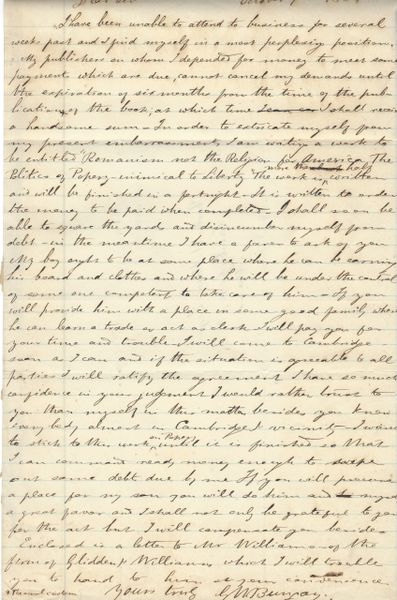 Dear Sir
I have been unable to attend to business for several
weeks past and I find myself in a most perplexing position.
My publishers on whom I depended for money to meet some
payment which are due, cannot cancel my demands until
the expiration of six months from the time of the pub-
lication of the book, at which time I shall receive
a handsome sum - In order to extricate myself from
my present embarrassment I am writing a work to
be entitled "Romanism not the Religion for America, The
Politics of Popery - inimical to Liberty The work is more than half written
and will be finished in a fortnight - It is written to order
the money to be paid when completed - I shall soon be
able to square the yards and disincumber myself from
debt - in the meantime I have a favor to ask of you
My boy ought to be at some place where he can be earning
his board and clothes and where he will be under the control
of some one competent to take care of him - If you
will provide him with a place in some good family where
he can learn a trade or act as clerk I will pay you for
your time and trouble I will come to Cambridge
soon as I can and if the situation is agreeable to all
parties I will ratify the agreement I have so much
confidence in your judgment I would rather trust to
you than myself in this matter besides you know
everybody almost in Cambridge & vicinity - I want
to stick to this work on Popery until it is finished so that
I can command ready money enough to swipe
out some debt due by me If you will procure
a place for my son you will do him and myself
a great favor and I shall not only be grateful to you
for the act but I will compensate you besides
Enclosed is a letter to Mr Williams of the
firm of Glidden & Williams which I will trouble
you to hand to him at your convenience
Yours truly